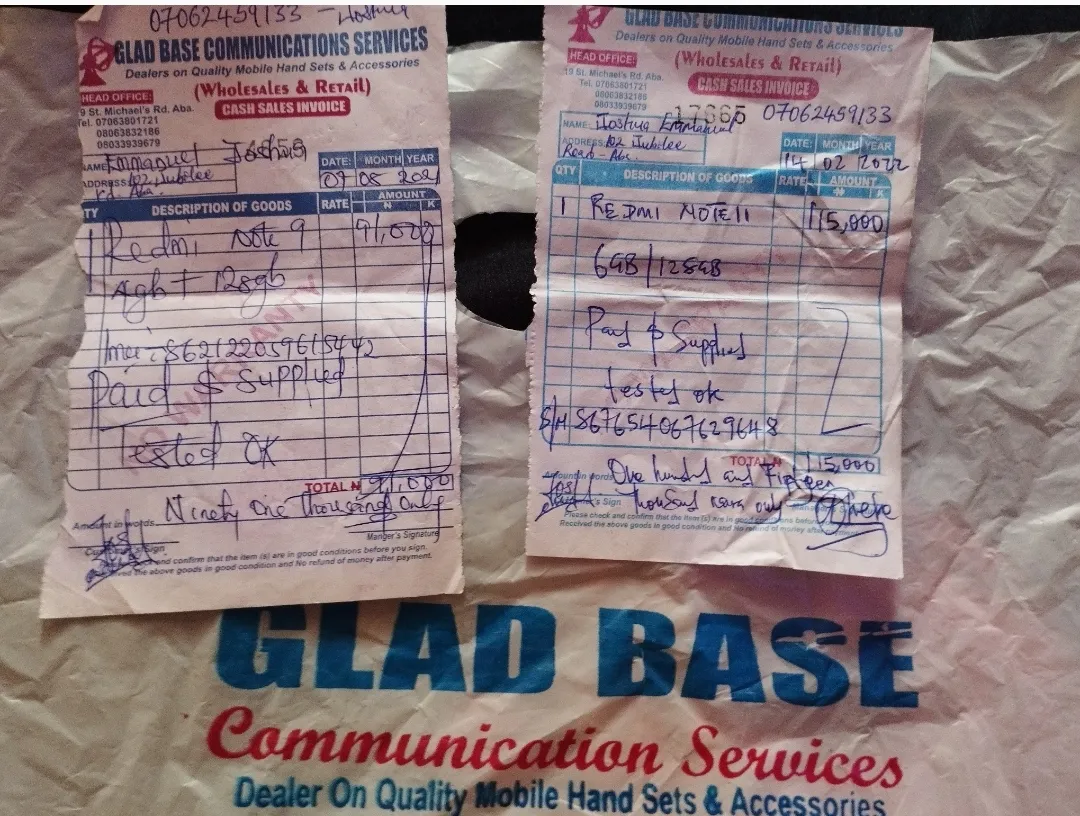 07062459133 - Joshua
GLAD BASE COMMUNICATIONS SERVICES
Dealers on Quality Mobile Hand Sets & Accessories
(Wholesales & Retail)
HEAD OFFICE:
CASH SALES INVOICE
9 St. Michael's Rd. Aba.
Tel. 07063801721
08063832186
08033939679
NAME Emmanuel Joshua
ADDRESS: 102 Jubilee
Rd Aba.
DATE: MONTH YEAR
09 08 2021
TY DESCRIPTION OF GOODS RATE AMOUNT
₦ K
1 Redmi Note 9 91,000
4gb + 128gb
Imei - 862122059615442
Paid $ Supplied
NO WARRANTY
Tested OK
TOTAL ₦ 91,000
Amount in words Ninety One thousand Only
Customer's Sign
Manger's Signature
and confirm that the item (s) are in good conditions before you sign.
the above goods in good condition and No refund of money after payment.
GLAD BASE COMMUNICATIONS SERVICES
Dealers on Quality Mobile Hand Sets & Accessories
(Wholesales & Retail)
HEAD OFFICE:
CASH SALES INVOICE
19 St. Michael's Rd. Aba.
Tel. 07063801721
08063832186
08033939679
17665 07062459133
NAME: Joshua Emmanuel
ADDRESS: 102 Jubilee
Road - Aba.
DATE: MONTH YEAR
14 02 2022
QTY DESCRIPTION OF GOODS RATE AMOUNT
₦ K
1 REDMI NOTE 11 115,000
6GB/128GB
Paid $ Supplied
tested ok
S/N 867654067629648
TOTAL ₦ 115,000
Amount in words One hundred and Fifteen
thousand naira only
Sign
Please check and confirm that the item (s) are in good conditions before
Received the above goods in good condition and No refund of money after
GLAD BASE
Communication Services
Dealer On Quality Mobile Hand Sets & Accessories